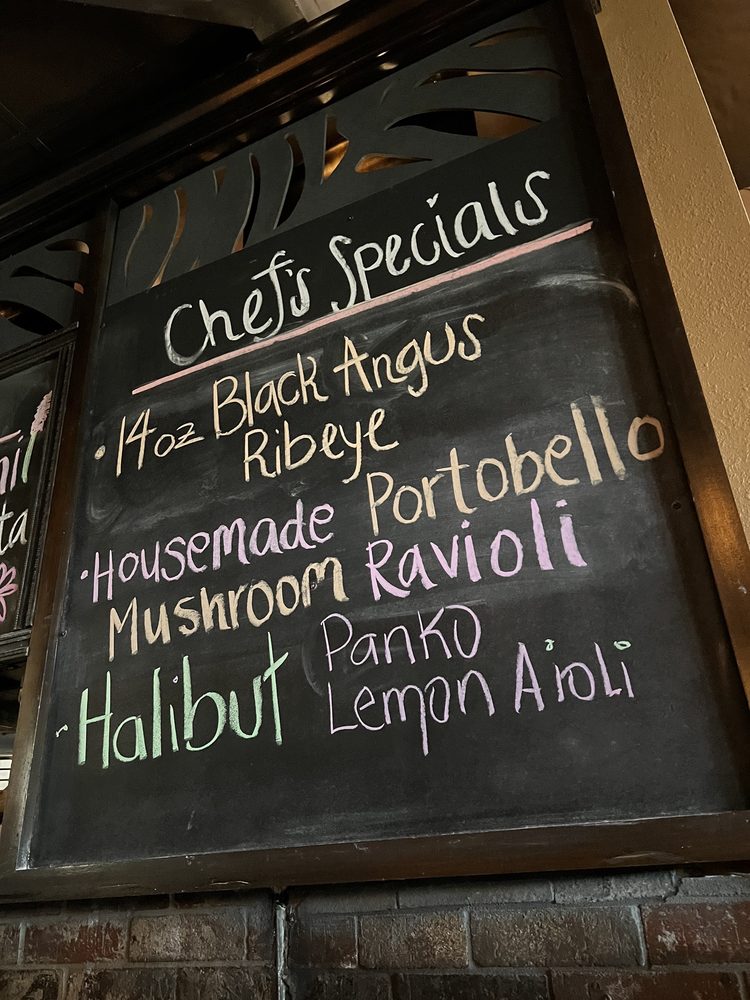 Chef's Specials
· 14oz Black Angus
Ribeye
· Housemade Portobello
Mushroom Ravioli
- Halibut Panko
Lemon Aioli